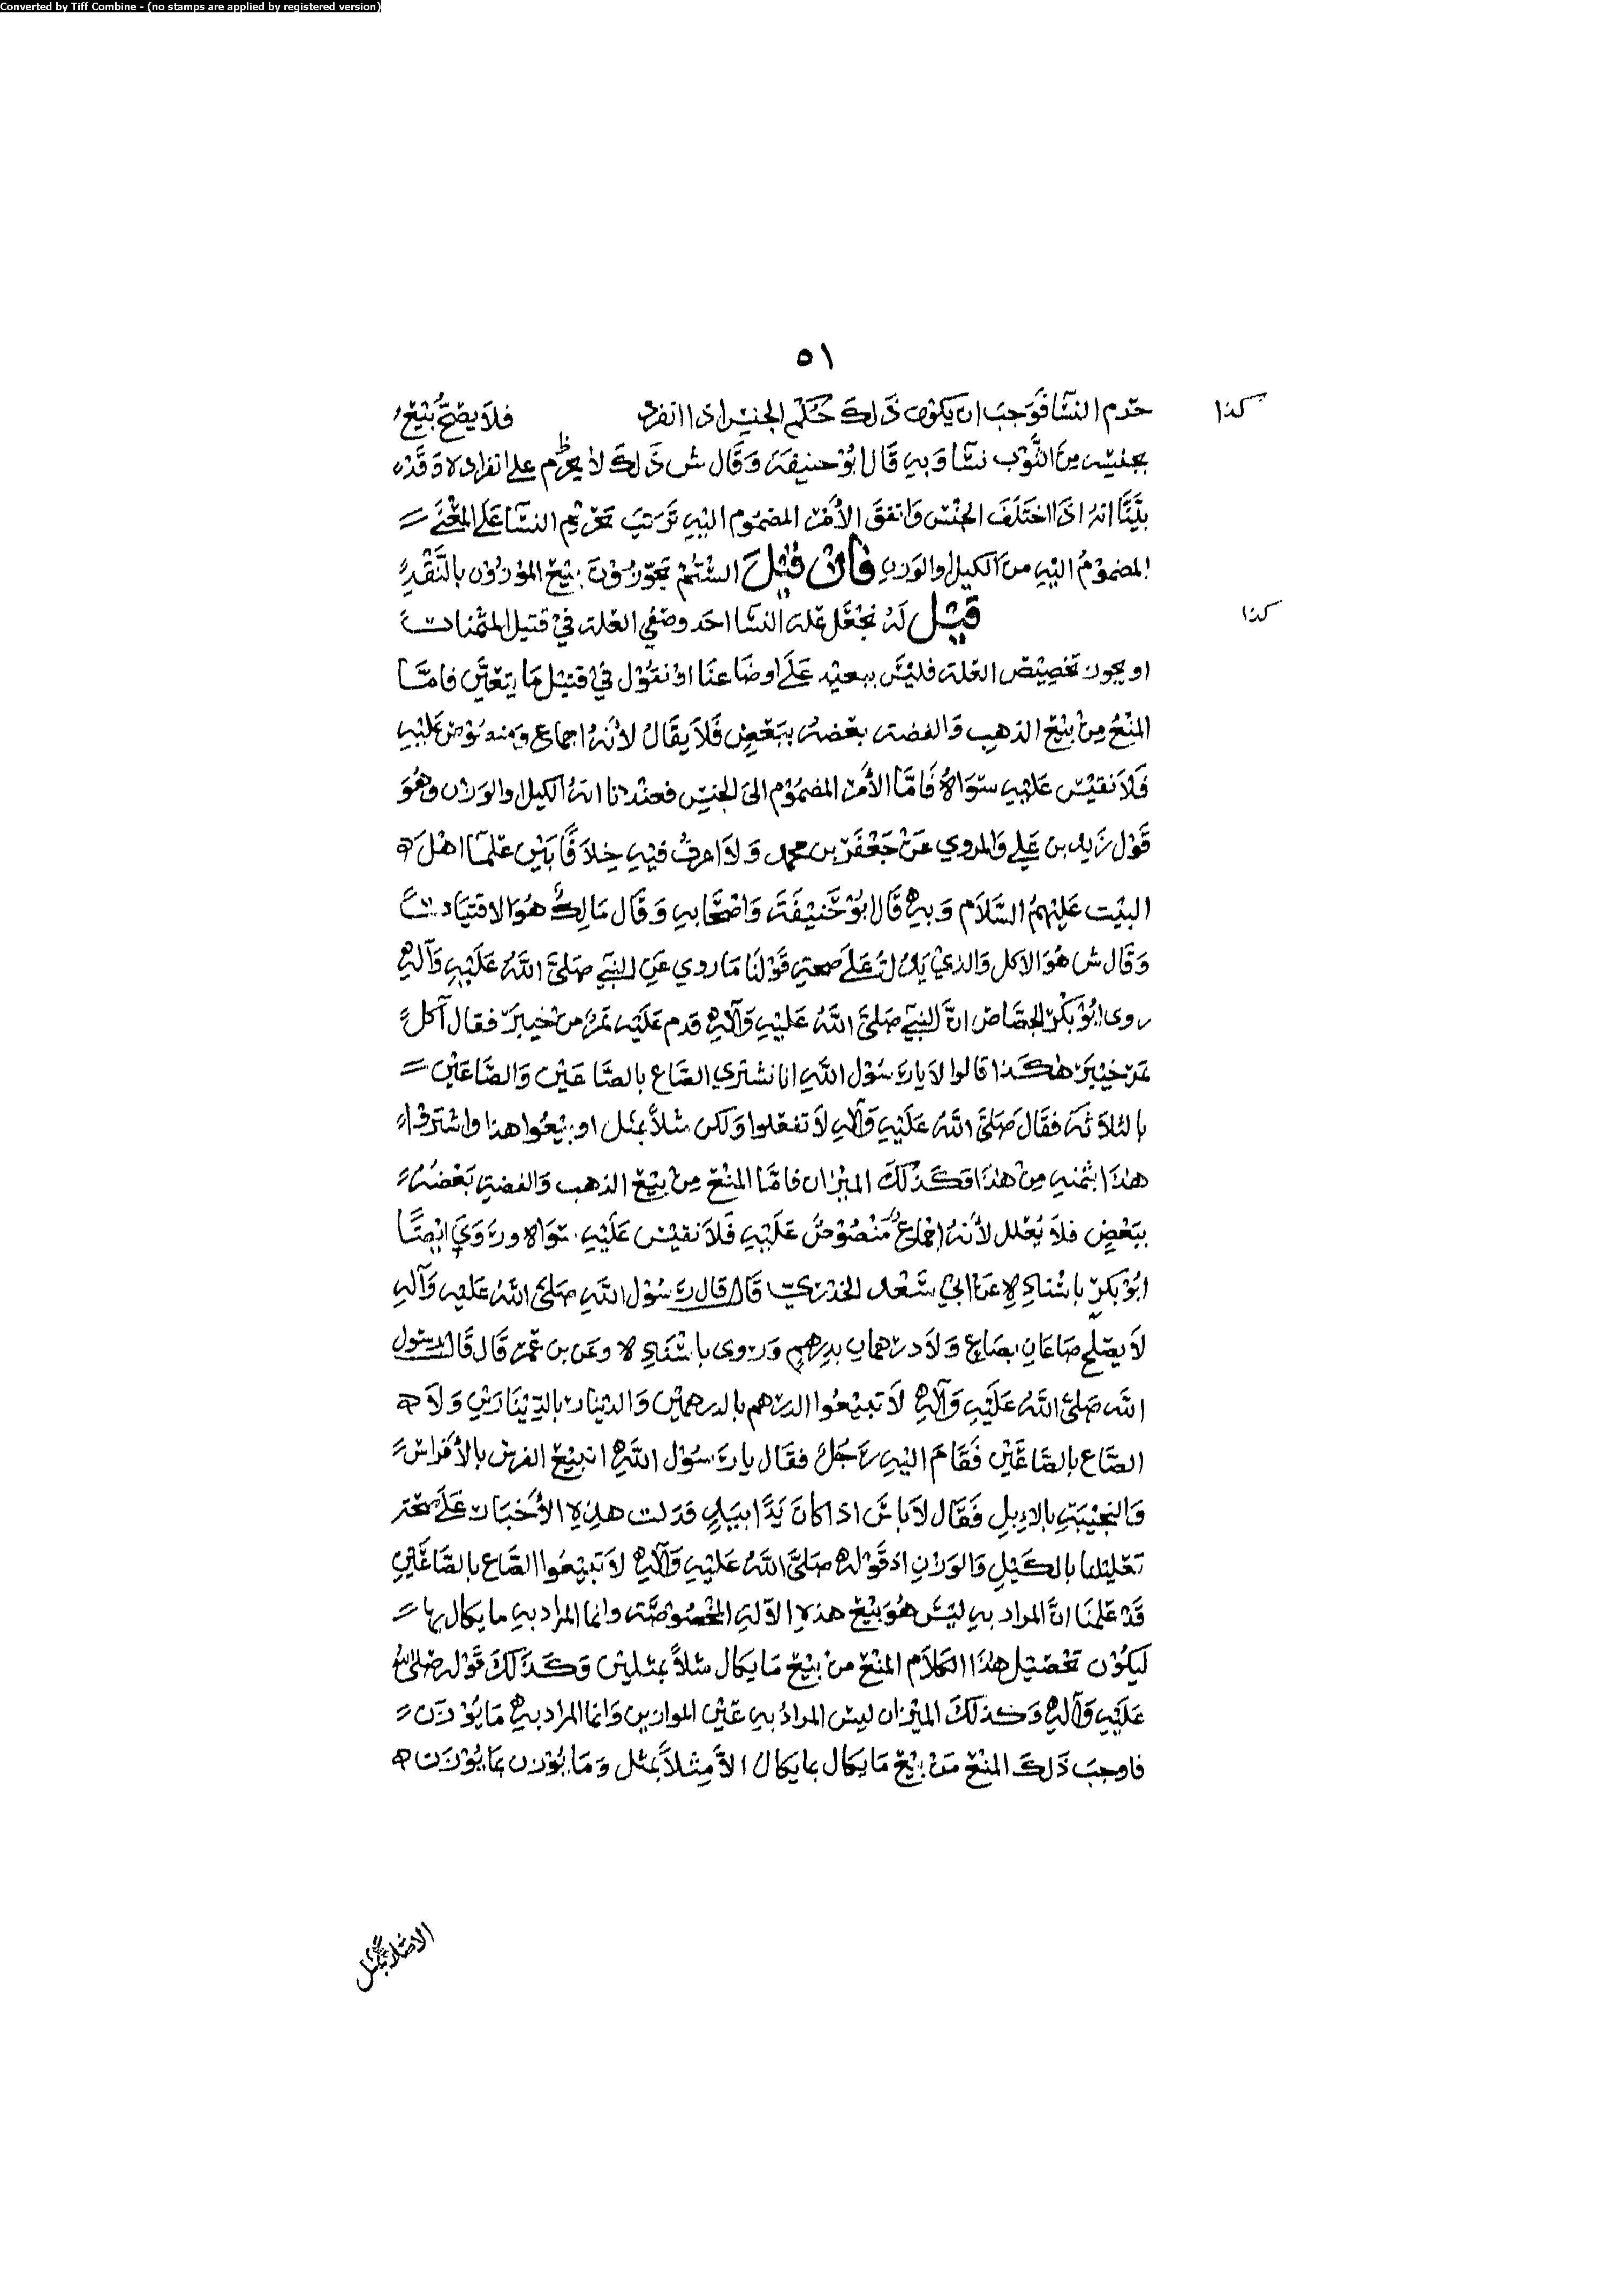 Converted by Tiff Combine - (no stamps are applied by registered version)
٥١
كذا
حرم النسا فوجب ان يكون ذلك حكم الجنس اذا انفرد فلا يصح بيع
بجنسه من الثوب نسا وبه قال ابو حنيفة وقال ش ذلك لا يحرم على انفراده وقد
بينا انه اذا اختلف الجنس واتفق الأمر المضموم اليه ترتب تحريم النسا على المعنى
المضموم اليه من الكيل والوزن فان قيل الستم تجوزون بيع الموزون بالنقد
كذا
قيل له نجعل علة النسا احد وصفي العلة في قتيل المثمنات
او يجوز تخصيص العلة فليس ببعيد على اوضاعنا او نقول في قتيل ما يتعين فاما
المنع من بيع الذهب والفضة بعضه ببعض فلا يقال لأنه اجماع ومنصوص عليه
فلا نقيس عليه سواه فاما الأمر المضموم الى الجنس فعندنا انه الكيل والوزن وهو
قول زيد بن علي والمروي عن جعفر بن محمد ولا اعرف فيه خلافا بين علما اهل
البيت عليهم السلام وبه قال ابو حنيفة واصحابه وقال مالك هو الاقتيات
وقال ش هو الاكل والذي يدل على صحة قولنا ما روي عن النبي صلى الله عليه وآله
روى ابو بكر الجصاص ان النبي صلى الله عليه وآله قدم عليه تمر من خيبر فقال أكل
تمر خيبر هكذا قالوا لا يا رسول الله انا نشتري الصاع بالصاعين والصاعين
بالثلاثة فقال صلى الله عليه وآله لا تفعلوا ولكن مثلا بمثل او بيعوا هذا واشتروا
هذا بثمنه من هذا وكذلك الميزان فاما المنع من بيع الذهب والفضة بعضه
ببعض فلا يعلل لأنه اجماع منصوص عليه فلا نقيس عليه سواه وروى ايضا
ابو بكر باسناده عن ابي سعد الخدري قال قال رسول الله صلى الله عليه وآله
لا يصلح صاعان بصاع ولا درهمان بدرهم وروى باسناده وعن بن عمر قال قال رسول
الله صلى الله عليه وآله لا تبيعوا الدرهم بالدرهمين والدينار بالدينارين ولا
الصاع بالصاعين فقام اليه رجل فقال يا رسول الله انبيع الفرس بالأفراس
والنجيبة بالإبل فقال لا باس اذا كان يدا بيد فدلت هذه الأخبار على صحة
تعليلنا بالكيل والوزن اذ قوله صلى الله عليه وآله لا تبيعوا الصاع بالصاعين
قد علمنا ان المراد به ليس هو بيع هذه الآلة المخصوصة وانما المراد به ما يكال بها
ليكون تحصيل هذا الكلام المنع من بيع ما يكال مثلا بمثلين وكذلك قوله صلى الله
عليه وآله وكذلك الميزان ليس المراد به عين الموازين وانما المراد به ما يوزن
فاوجب ذلك المنع من بيع ما يكال بما يكال الا مثلا بمثل وما يوزن بما يوزن
الا مثلا بمثل